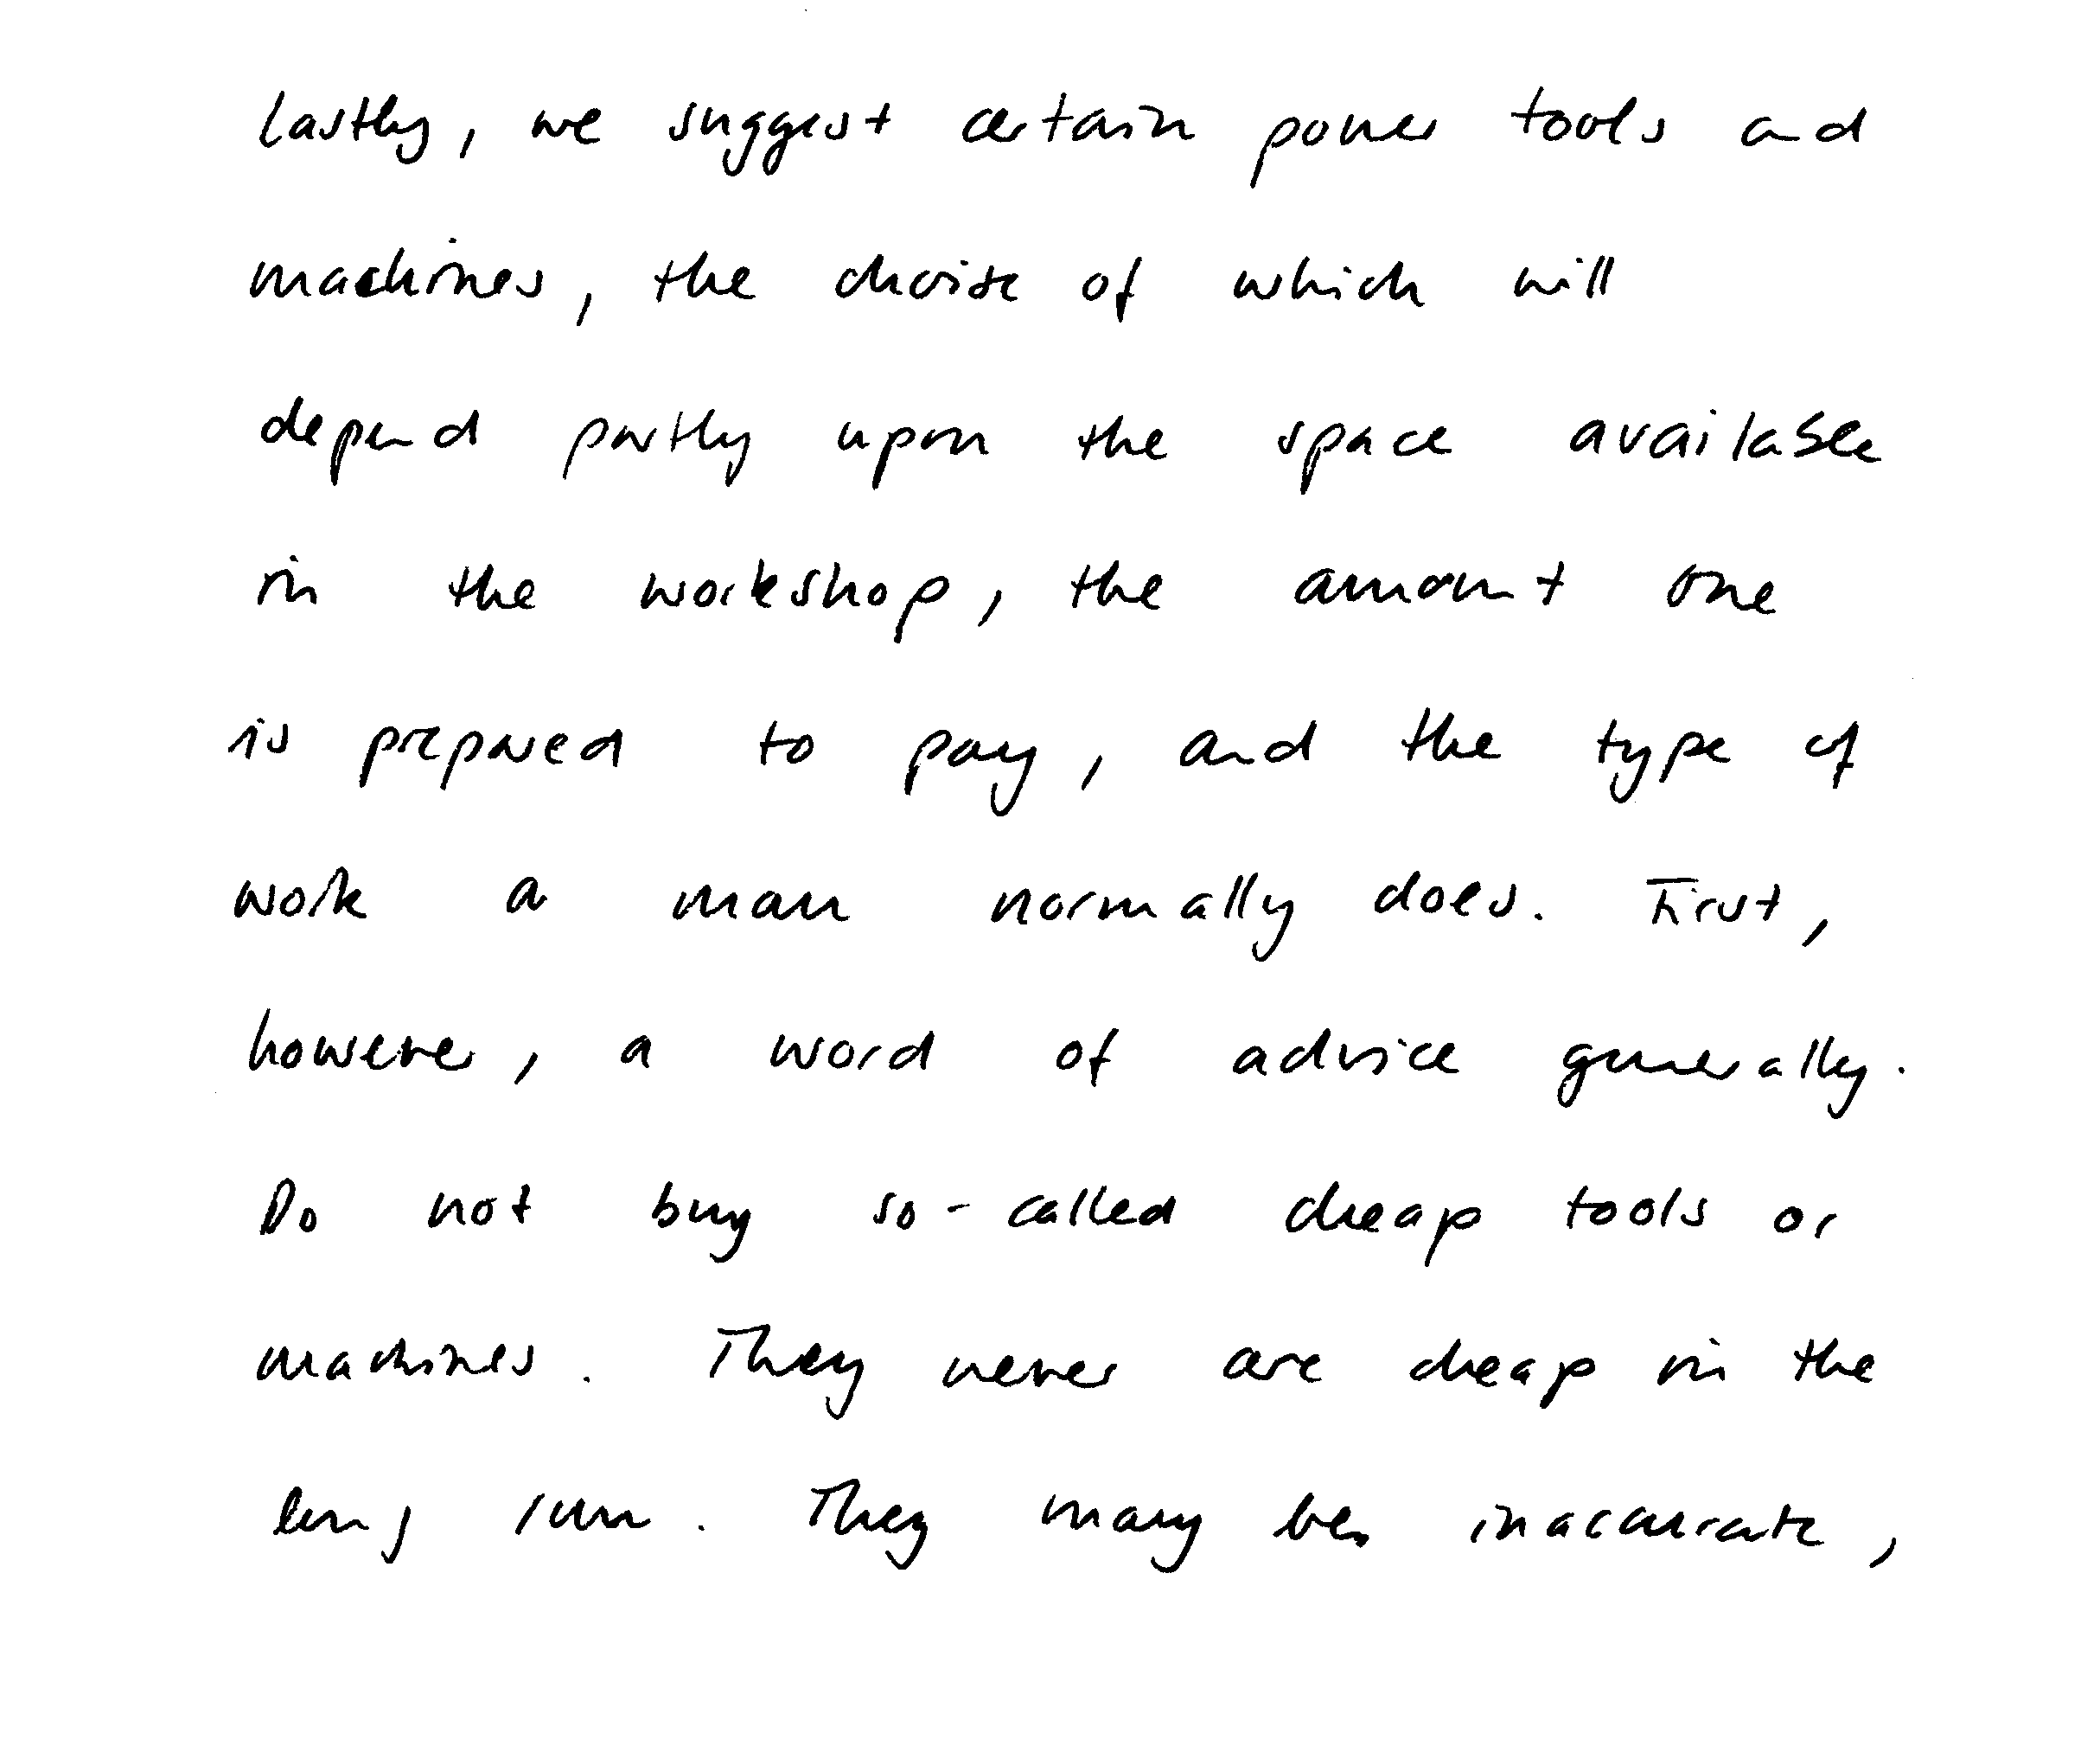 Lastly, we suggest certain power tools and
machines, the choise of which will
depend partly upon the space available
in the workshop, the amount one
is prepared to pay, and the type of
work a man normally does. First,
however, a word of advice generally.
Do not buy so-called cheap tools or
machines. They never are cheap in the
long run. They may be inaccurate,